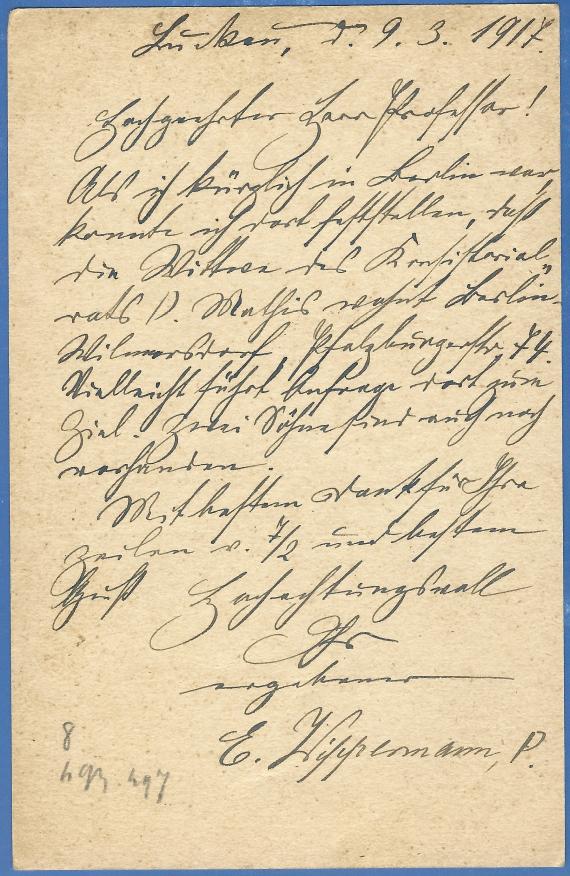 Luckau, d. 9. 3. 1917.
Hochgeehrter Herr Professor!
Als ich kürzlich in Berlin war,
konnte ich dort feststellen, daß
die Witwe des Konsistorial-
rats D. Mathis wohnt Berlin-
Wilmersdorf, Pfalzburgerstr. 74.
Vielleicht führt Anfrage dort zum
Ziel. Zwei Söhne sind auch noch
vorhanden.
Mit bestem Dank für Ihre
Zeilen v. 7/2 und bestem
Gruß Hochachtungsvoll
Ihr
ergebener
E. P.
8